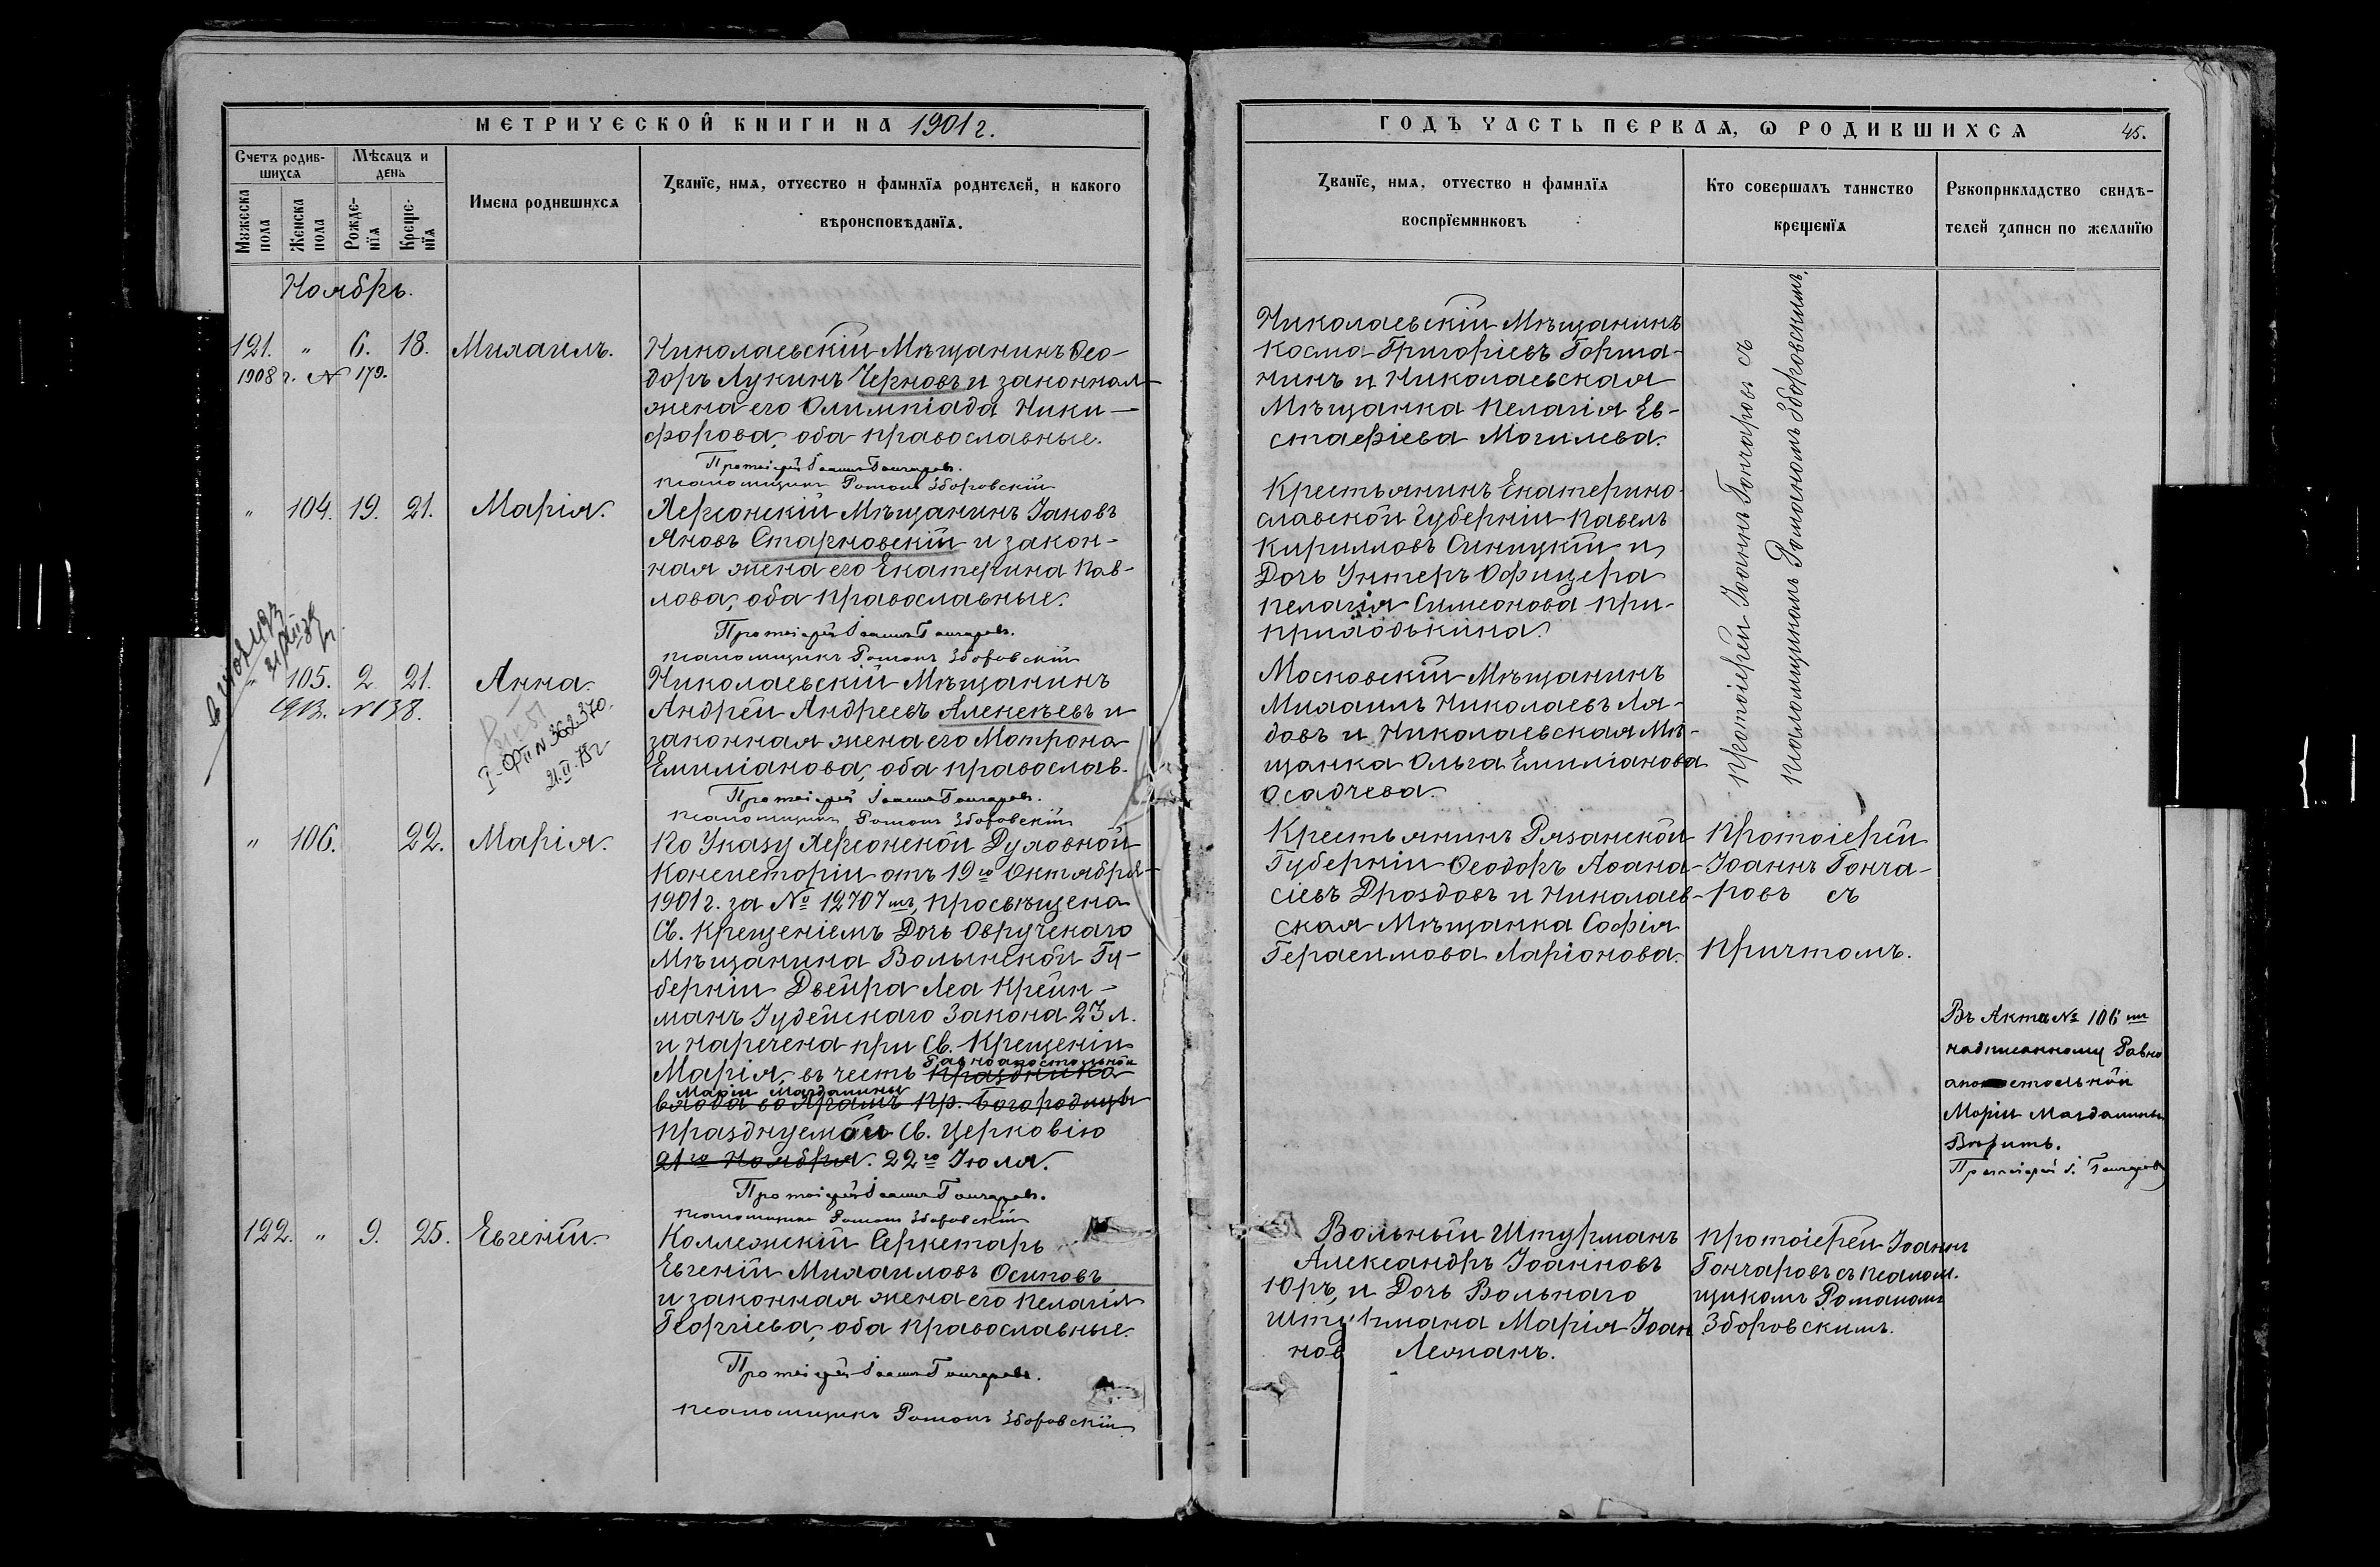 МЕТРИЧЕСКОЙ КНИГИ НА 1901 г.
Счетъ родив-
шихся
Мѣсяцъ и
день
Мужеска
пола
Женска
пола
Рожде-
нїя
Креще-
нїя
Имена родившихся
Званїе, имя, отчество и фамилїя родителей, и какого
вѣроисповѣданїя.
Ноябрь.
121. " 6. 18. Михаилъ.
1908 г. № 179.
Николаевскій Мѣщанинъ Ѳео-
доръ Лукинъ Черновъ и законная
жена его Олимпіада Ники-
форова, оба православные.
Протоіерей Іоаннъ Гончаровъ.
Псаломщикъ Романъ Зборовскій
" 104. 19. 21. Марія.
Херсонскій Мѣщанинъ Іаковъ
Яновъ Старновскій и закон-
ная жена его Екатерина Пав-
лова, оба православные.
Протоіерей Іоаннъ Гончаровъ.
Псаломщикъ Романъ Зборовскій
" 105. 2. 21. Анна.
1913. № 138.
I-ФП № 3662370.
21.II.75г.
Николаевскій Мѣщанинъ
Андрей Андреевъ Алексѣевъ и
законная жена его Матрона
Емиліанова, оба православ.
Протоіерей Іоаннъ Гончаровъ.
Псаломщикъ Романъ Зборовскій
" 106. 22. Марія.
По Указу Херсонской Духовной
Консисторіи отъ 19го Октября
1901 г. за № 12707мъ, просвѣщена
Св. Крещеніемъ Дочь Овручскаго
Мѣщанина Волынской Гу-
берніи Двейра Леа Крейн-
манъ Іудейскаго Закона 23 л.
и наречена при Св. Крещеніи
Равноапостольной
Марія, въ честь праздника
Маріи Магдалины
входа во Храмъ Пр. Богородицы
празднуемой Св. Церковію
21го Ноября. 22го Іюля.
Протоіерей Іоаннъ Гончаровъ.
Псаломщикъ Романъ Зборовскій
122. " 9. 25. Евгеній.
Коллежскій Секретарь
Евгеній Михаиловъ Осиповъ
и законная жена его Пелагія
Георгіева, оба православные.
Протоіерей Іоаннъ Гончаровъ.
Псаломщикъ Романъ Зборовскій
ГОДЪ ЧАСТЬ ПЕРВАЯ, Ѡ РОДИВШИХСЯ 45.
Званїе, имя, отчество и фамилїя
воспрїемниковъ
Кто совершалъ таинство
крещенїя
Рукоприкладство свидѣ-
телей записи по желанїю
Николаевскій Мѣщанинъ
Косма Григоріевъ Горша-
нинъ и Николаевская
Мѣщанка Пелагія Ев-
стафіева Могилева.
Крестьянинъ Екатерино-
славской губерніи Павелъ
Кирилловъ Синицкій и
Дочь Унтеръ Офицера
Пелагія Симеонова При-
приходькина.
Московскій Мѣщанинъ
Михаилъ Николаевъ Ля-
довъ и Николаевская Мѣ-
щанка Ольга Емиліанова
Осадчева.
Протоіерей Іоаннъ Гончаровъ съ
Псаломщикомъ Романомъ Зборовскимъ.
Крестьянинъ Рязанской
Губерніи Ѳеодоръ Аѳана-
сіевъ Дроздовъ и Николаев-
ская Мѣщанка Софія
Герасимова Ларіонова.
Протоіерей
Іоаннъ Гонча-
ровъ съ
Причтомъ.
Въ Актѣ № 106мъ
надписанному Равно
апостольной
Маріи Магдалины
Вѣрить.
Протоіерей І. Гончаровъ
Вольный Штурманъ
Александръ Іоанновъ
Юръ, и Дочь Вольнаго
Штурмана Марія Іоан
нов Леманъ.
Протоіерей Іоаннъ
Гончаровъ съ Псалом-
щикомъ Романомъ
Зборовскимъ.